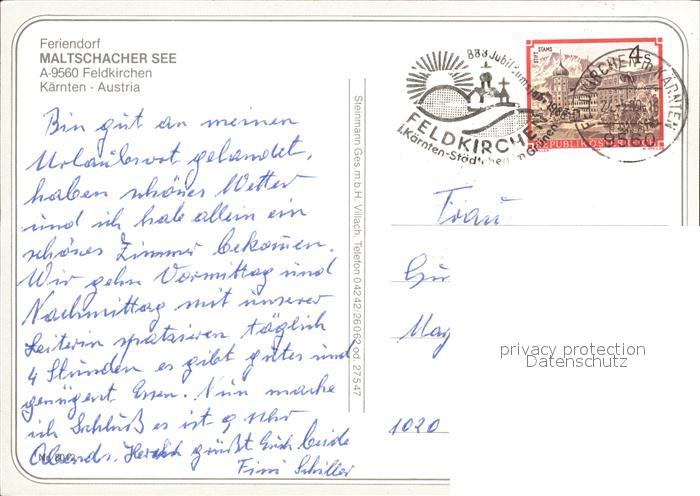 Feriendorf
MALTSCHACHER SEE
A-9560 Feldkirchen
Kärnten - Austria
Bin gut an meinen
Urlaubsort gelandet,
haben schönes Wetter
und ich habe allein ein
schönes Zimmer bekommen.
Wir gehn Vormittag und
Nachmittag mit unserer
Leiterin spatzieren täglich
4 Stunden es gibt gutes und
genügent Essen. Nun mache
ich Schluß es ist 9 Uhr
Abends. Herzlich grüßt Euch beide
Fini Schiller
Steinmann Ges.m.b.H. Villach, Telefon 04242/26062 od. 27547
888 Jubiläum
FELDKIRCHEN
i.Kärnten-Städtchen im Grünen
STIFT STAMS
4 S
REPUBLIK ÖSTERREICH
FELDKIRCHEN in KÄRNTEN
9560
Frau
1020
privacy protection
Datenschutz